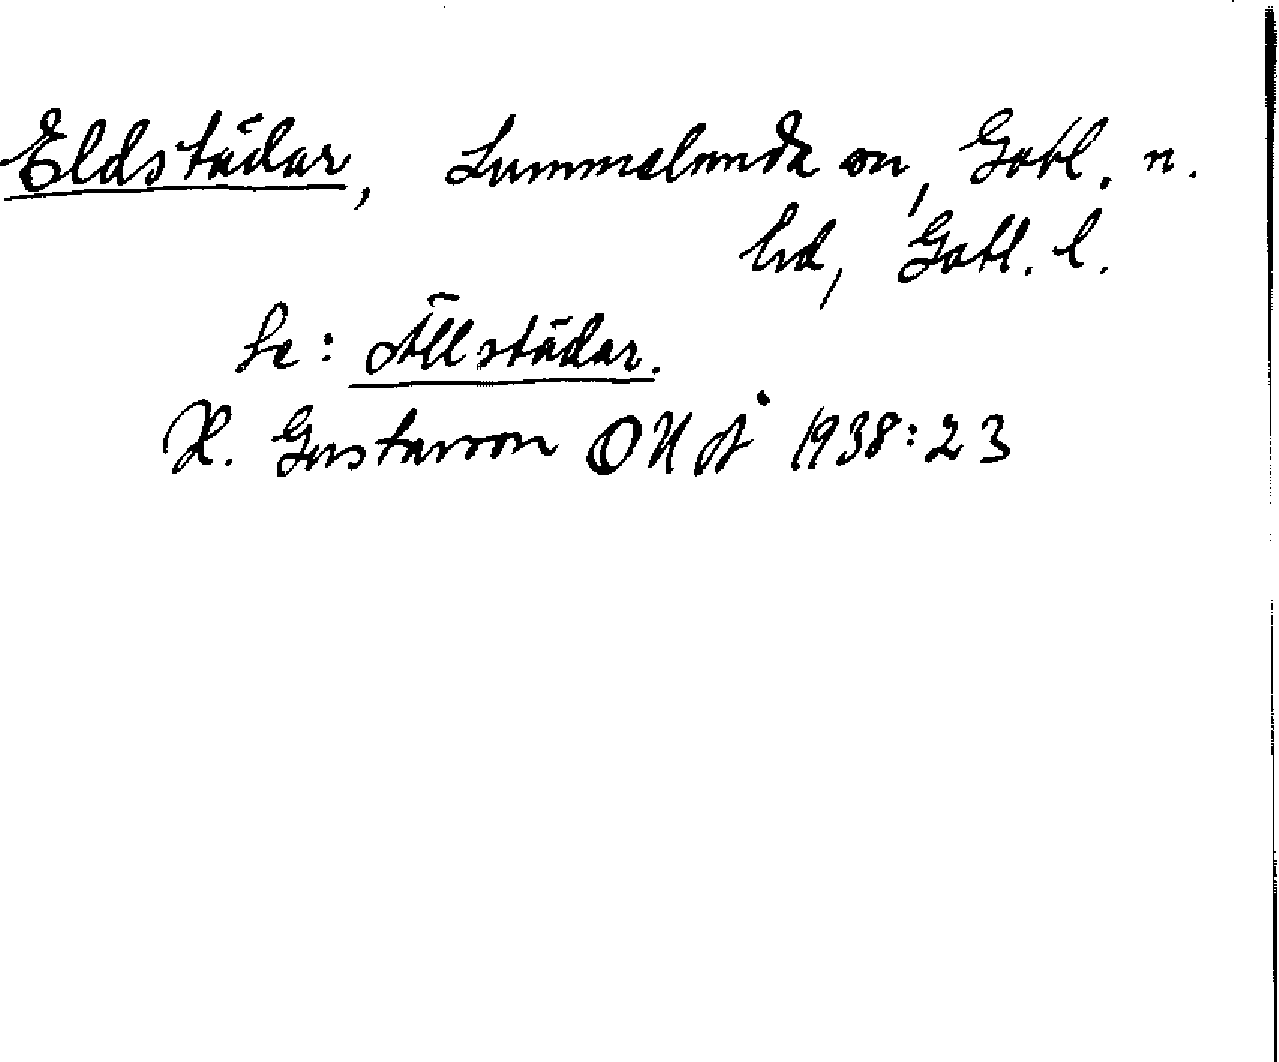 Eldstädar, Lummelunda sn, Gotl. n.
hd, Gotl. l.
Se: Ällstädar.
H. Gustavson OUÅ 1938:23